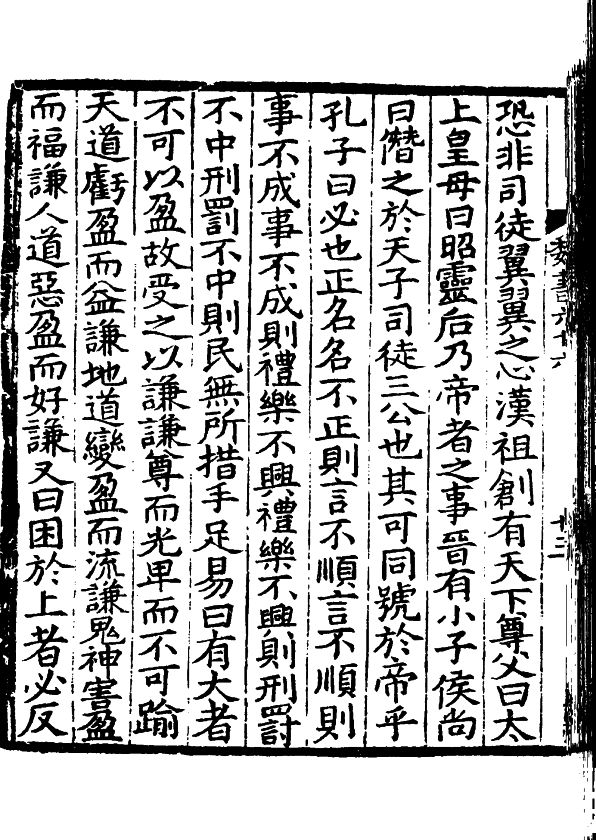 魏書六十六
恐非司徒翼翼之心漢祖創有天下尊父曰太
上皇母曰昭靈后乃帝者之事晉有小子侯尚
曰僭之於天子司徒三公也其可同號於帝乎
孔子曰必也正名名不正則言不順言不順則
事不成事不成則禮樂不興禮樂不興則刑罸
不中刑罰不中則民無所措手足易曰有大者
不可以盈故受之以謙謙尊而光卑而不可踰
天道虧盈而益謙地道變盈而流謙鬼神害盈
而福謙人道惡盈而好謙又曰困於上者必反